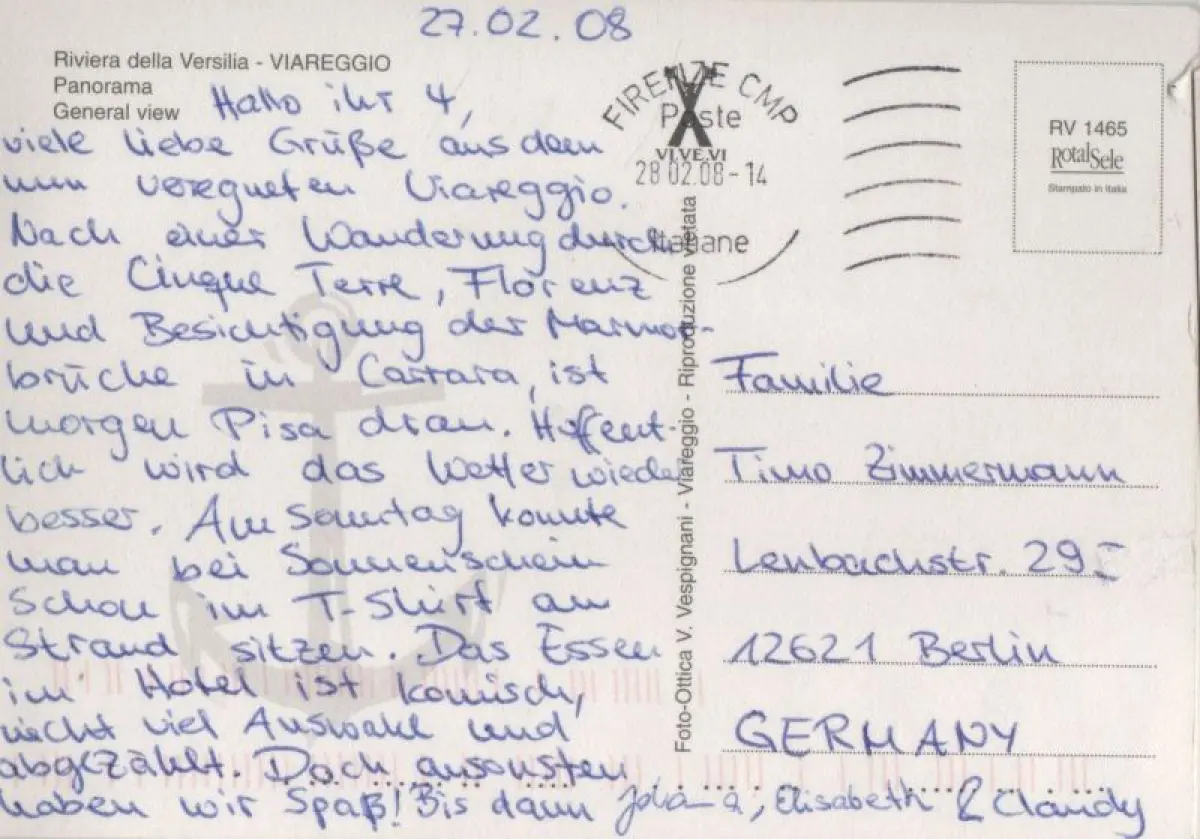 27.02.08
Riviera della Versilia - VIAREGGIO
Panorama
General view
Hallo ihr 4,
viele liebe Grüße aus dem
nun veregneten Viareggio.
Nach einer Wanderung durch
die Cinque Terre, Florenz
und Besichtigung der Marmor-
brüche in Carrara, ist
morgen Pisa dran. Hoffent-
lich wird das Wetter wieder
besser. Am Sonntag konnte
man bei Sonnenschein
schon im T-Shirt am
Strand sitzen. Das Essen
im Hotel ist komisch,
nicht viel Auswahl und
abgezählt. Doch ansonsten
haben wir Spaß! Bis dann
Elisabeth & Claudy
FIRENZE CMP
Poste
VI.VE.VI
28 02.08-14
Italiane
Foto-Ottica V. Vespignani - Viareggio - Riproduzione vietata
RV 1465
RotalSele
Stampato in Italia
Familie
Timo Zimmermann
Lenbachstr. 29
12621 Berlin
GERMANY